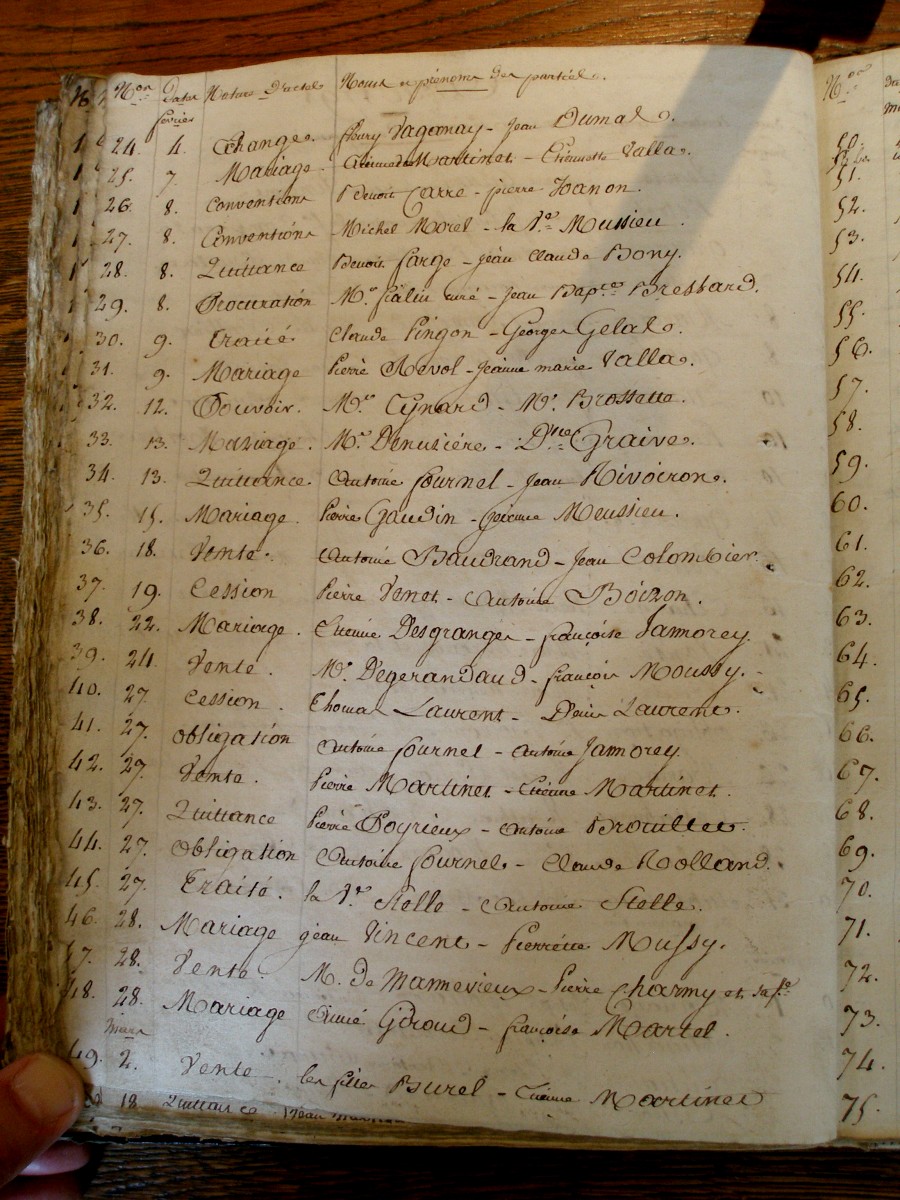 Nos Dates Nature D'actes Noms et prénoms des parties.
février
24. 4. Change. fleury Vaganay - Jean Dumas.
25. 7. Mariage. Martinet - Etiennette Valla.
26. 8. Conventions Benoit Carre - pierre Zanon.
27. 8. Conventions Michel Morel - la Ve Mussieu.
28. 8. Quittance Benoit farge - jean Claude Bony.
29. 8. Procuration Mre curé - Jean Bapte Bressard.
30. 9. Traité. Claude Pingon - Georges Gelas.
31. 9. Mariage Pierre Revol - Jeanne marie Valla.
32. 12. Pouvoir. Mr Cynard - Mr Brossette.
33. 13. Mariage. Mr Denuziére - Dlle Graive.
34. 13. Quittance. Antoine fournel - Jean Rivoiron.
35. 15. Mariage. Pierre Gaudin - Meussieu.
36. 18. Vente. Antoine Baudrand - Jean Colombier.
37. 19. Cession Pierre Venet - Antoine Boizon.
38. 22. Mariage. Etienne Desgranges - françoise Jamorey.
39. 24. Vente. Mr Degerandaud - françois Moussy.
40. 27 Cession. Thomas Laurent - Laurent.
41. 27. obligation Antoine fournel - Antoine Jamorey
42. 27. Vente. Pierre Martinet - Etienne Martinet.
43. 27. Quittance Pierre Poyrieux - Antoine Brouillet.
44. 27. Obligation Antoine fournel - Claude Rolland.
45. 27. Traité. la Ve Stelle - Antoine Stelle.
46. 28. Mariage jean Vincent - Pierrette Mussy.
47. 28. Vente. M. de Mannevieux - Pierre Charmy et sa fe
48. 28. Mariage Aimé Giroud - françoise Martel.
Mars
49. 2. Vente. les filles Burel - Etienne Martinet
18. Quittance Jean
50.
51.
52.
53.
54.
55.
56.
57.
58.
59.
60.
61.
62.
63.
64.
65.
66.
67.
68.
69.
70.
71.
72.
73.
74.
75.